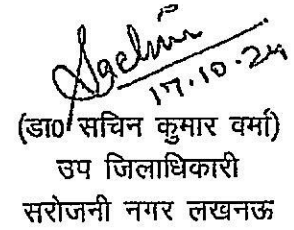 Sachin
17.10.24
(डा० सचिन कुमार वर्मा)
उप जिलाधिकारी
सरोजनी नगर लखनऊ